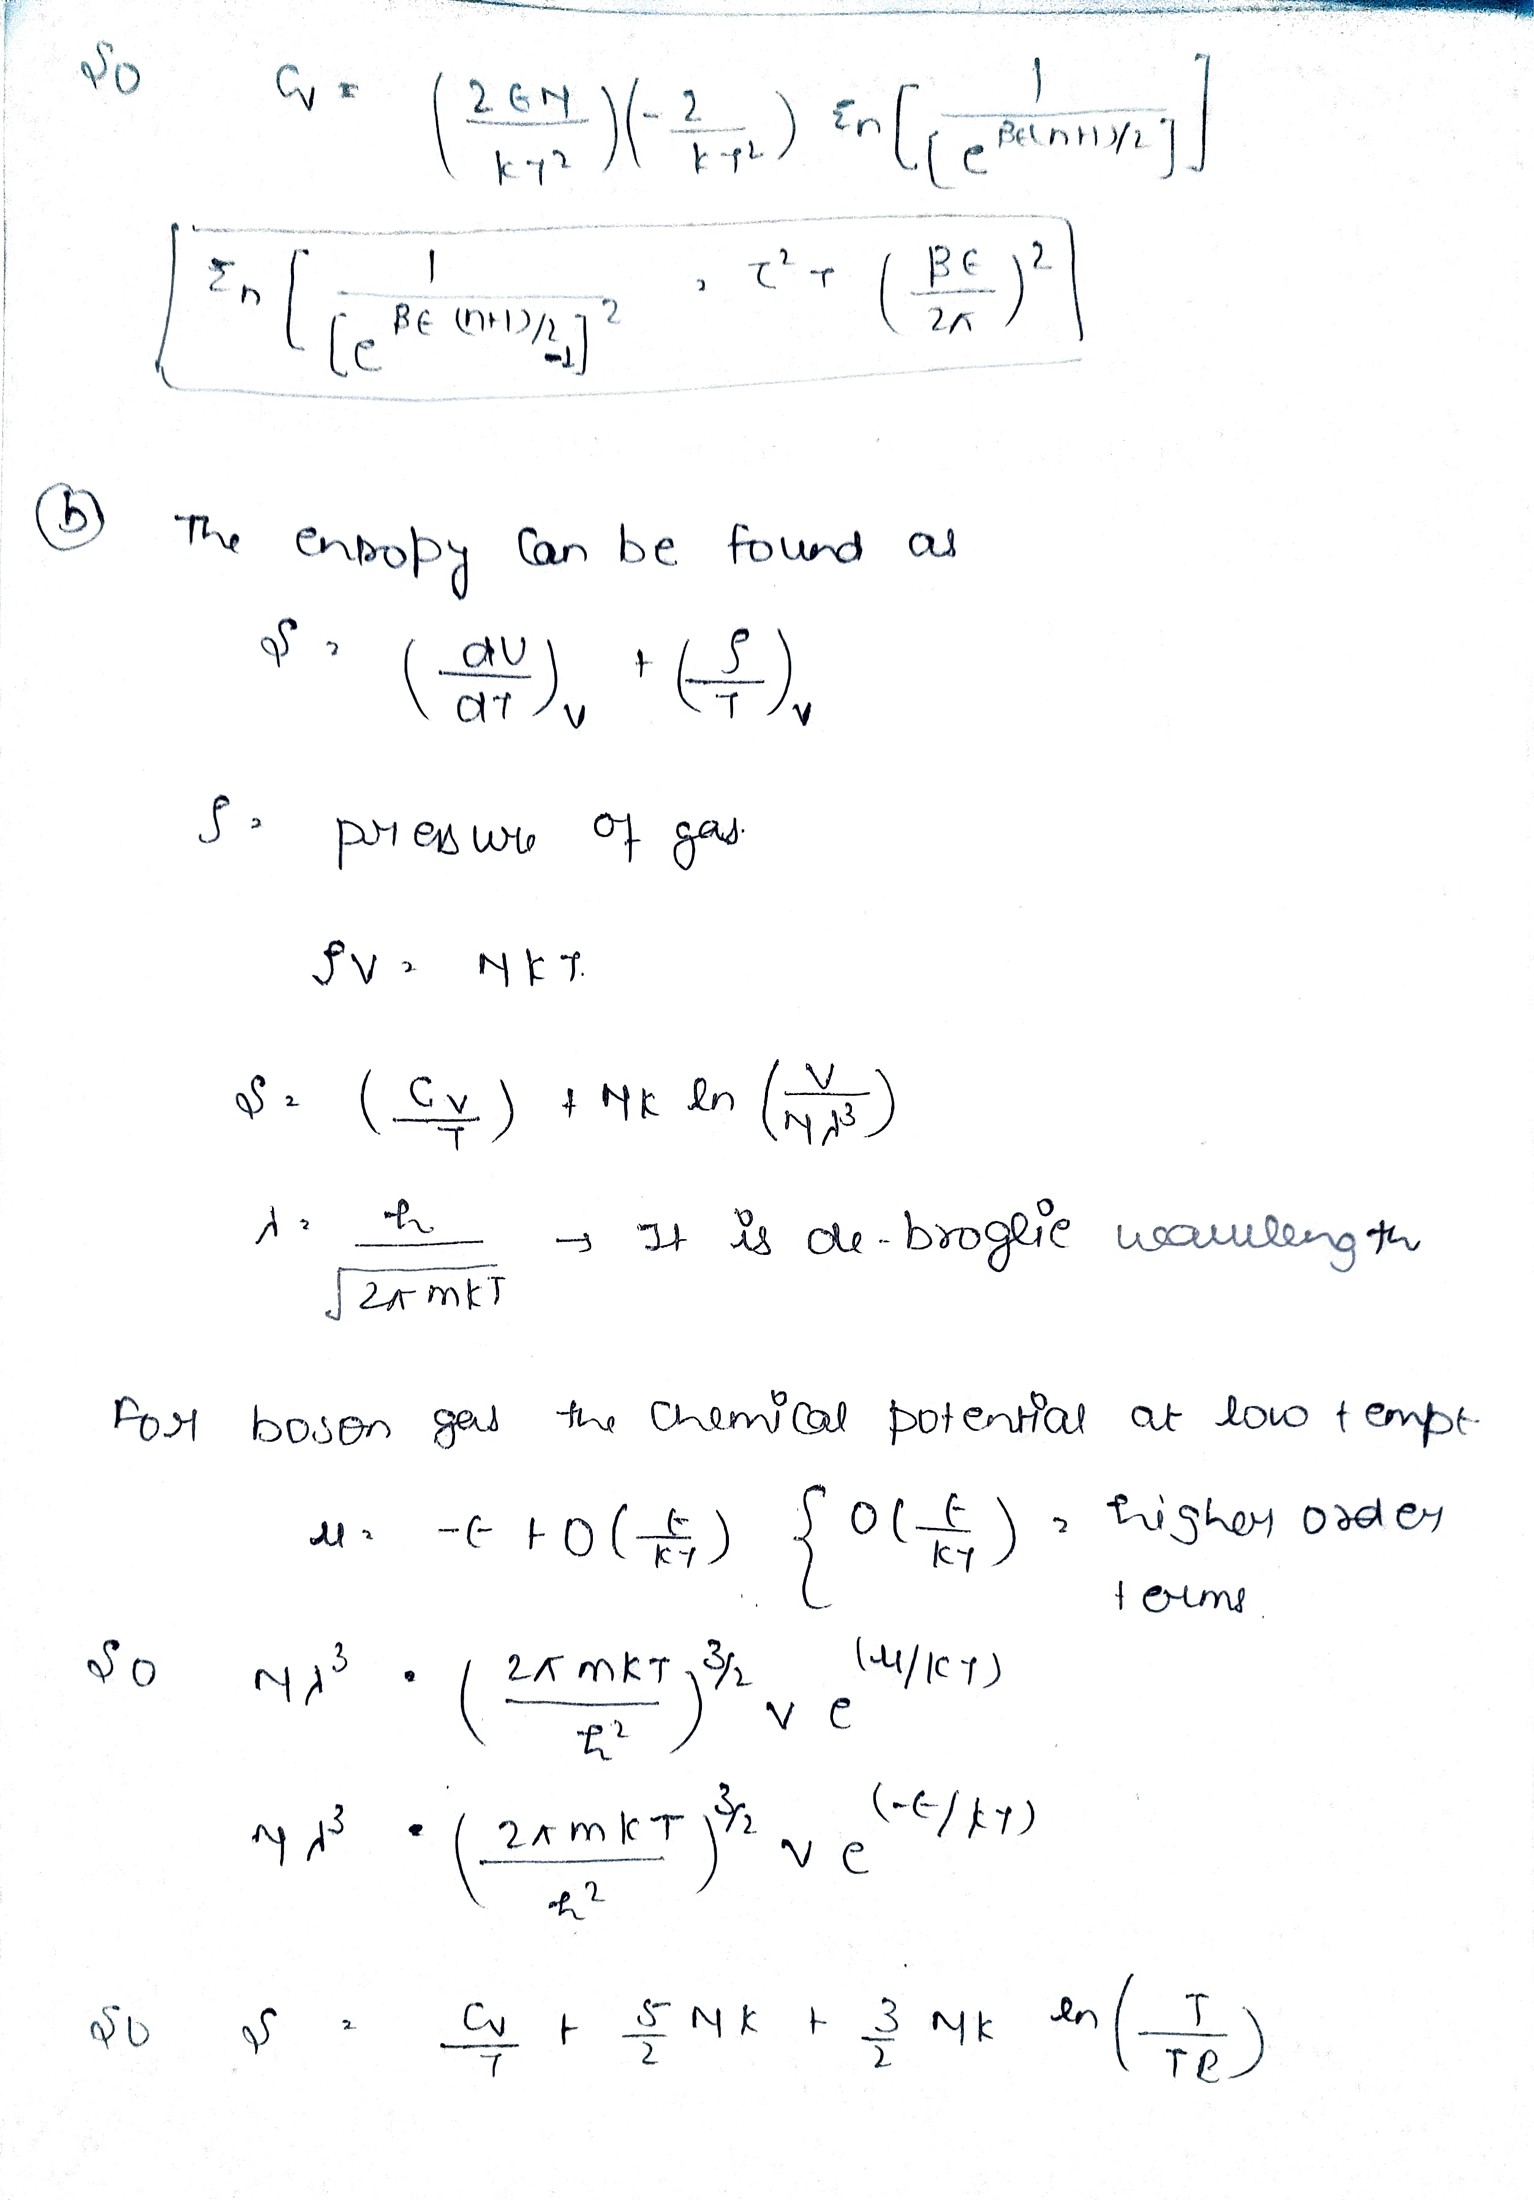 So Cv = (2EN / kT²)(-2 / kT²) Σn [1 / [e^(βE(n+1)/2)]]
Σn [1 / [e^(βE(n+1)/2) -1]² , τ² + (βE / 2π)²
(b) The entropy can be found as
S = (dU/dT)v + (P/T)v
P = pressure of gas.
PV = NKT.
S = (Cv/T) + NK ln (V / Nλ³)
λ = ħ / √2πmkT → It is de-broglie wavelength
For boson gas the chemical potential at low tempt
μ = -E + O(E/kT) { O(E/kT) = higher order
terms.
So Nλ³ = (2πmKT / ħ²)^3/2 V e^(μ/KT)
Nλ³ = (2πmKT / ħ²)^3/2 V e^(-E/kT)
So S = Cv/T + 5/2 NK + 3/2 NK ln (T / TR)